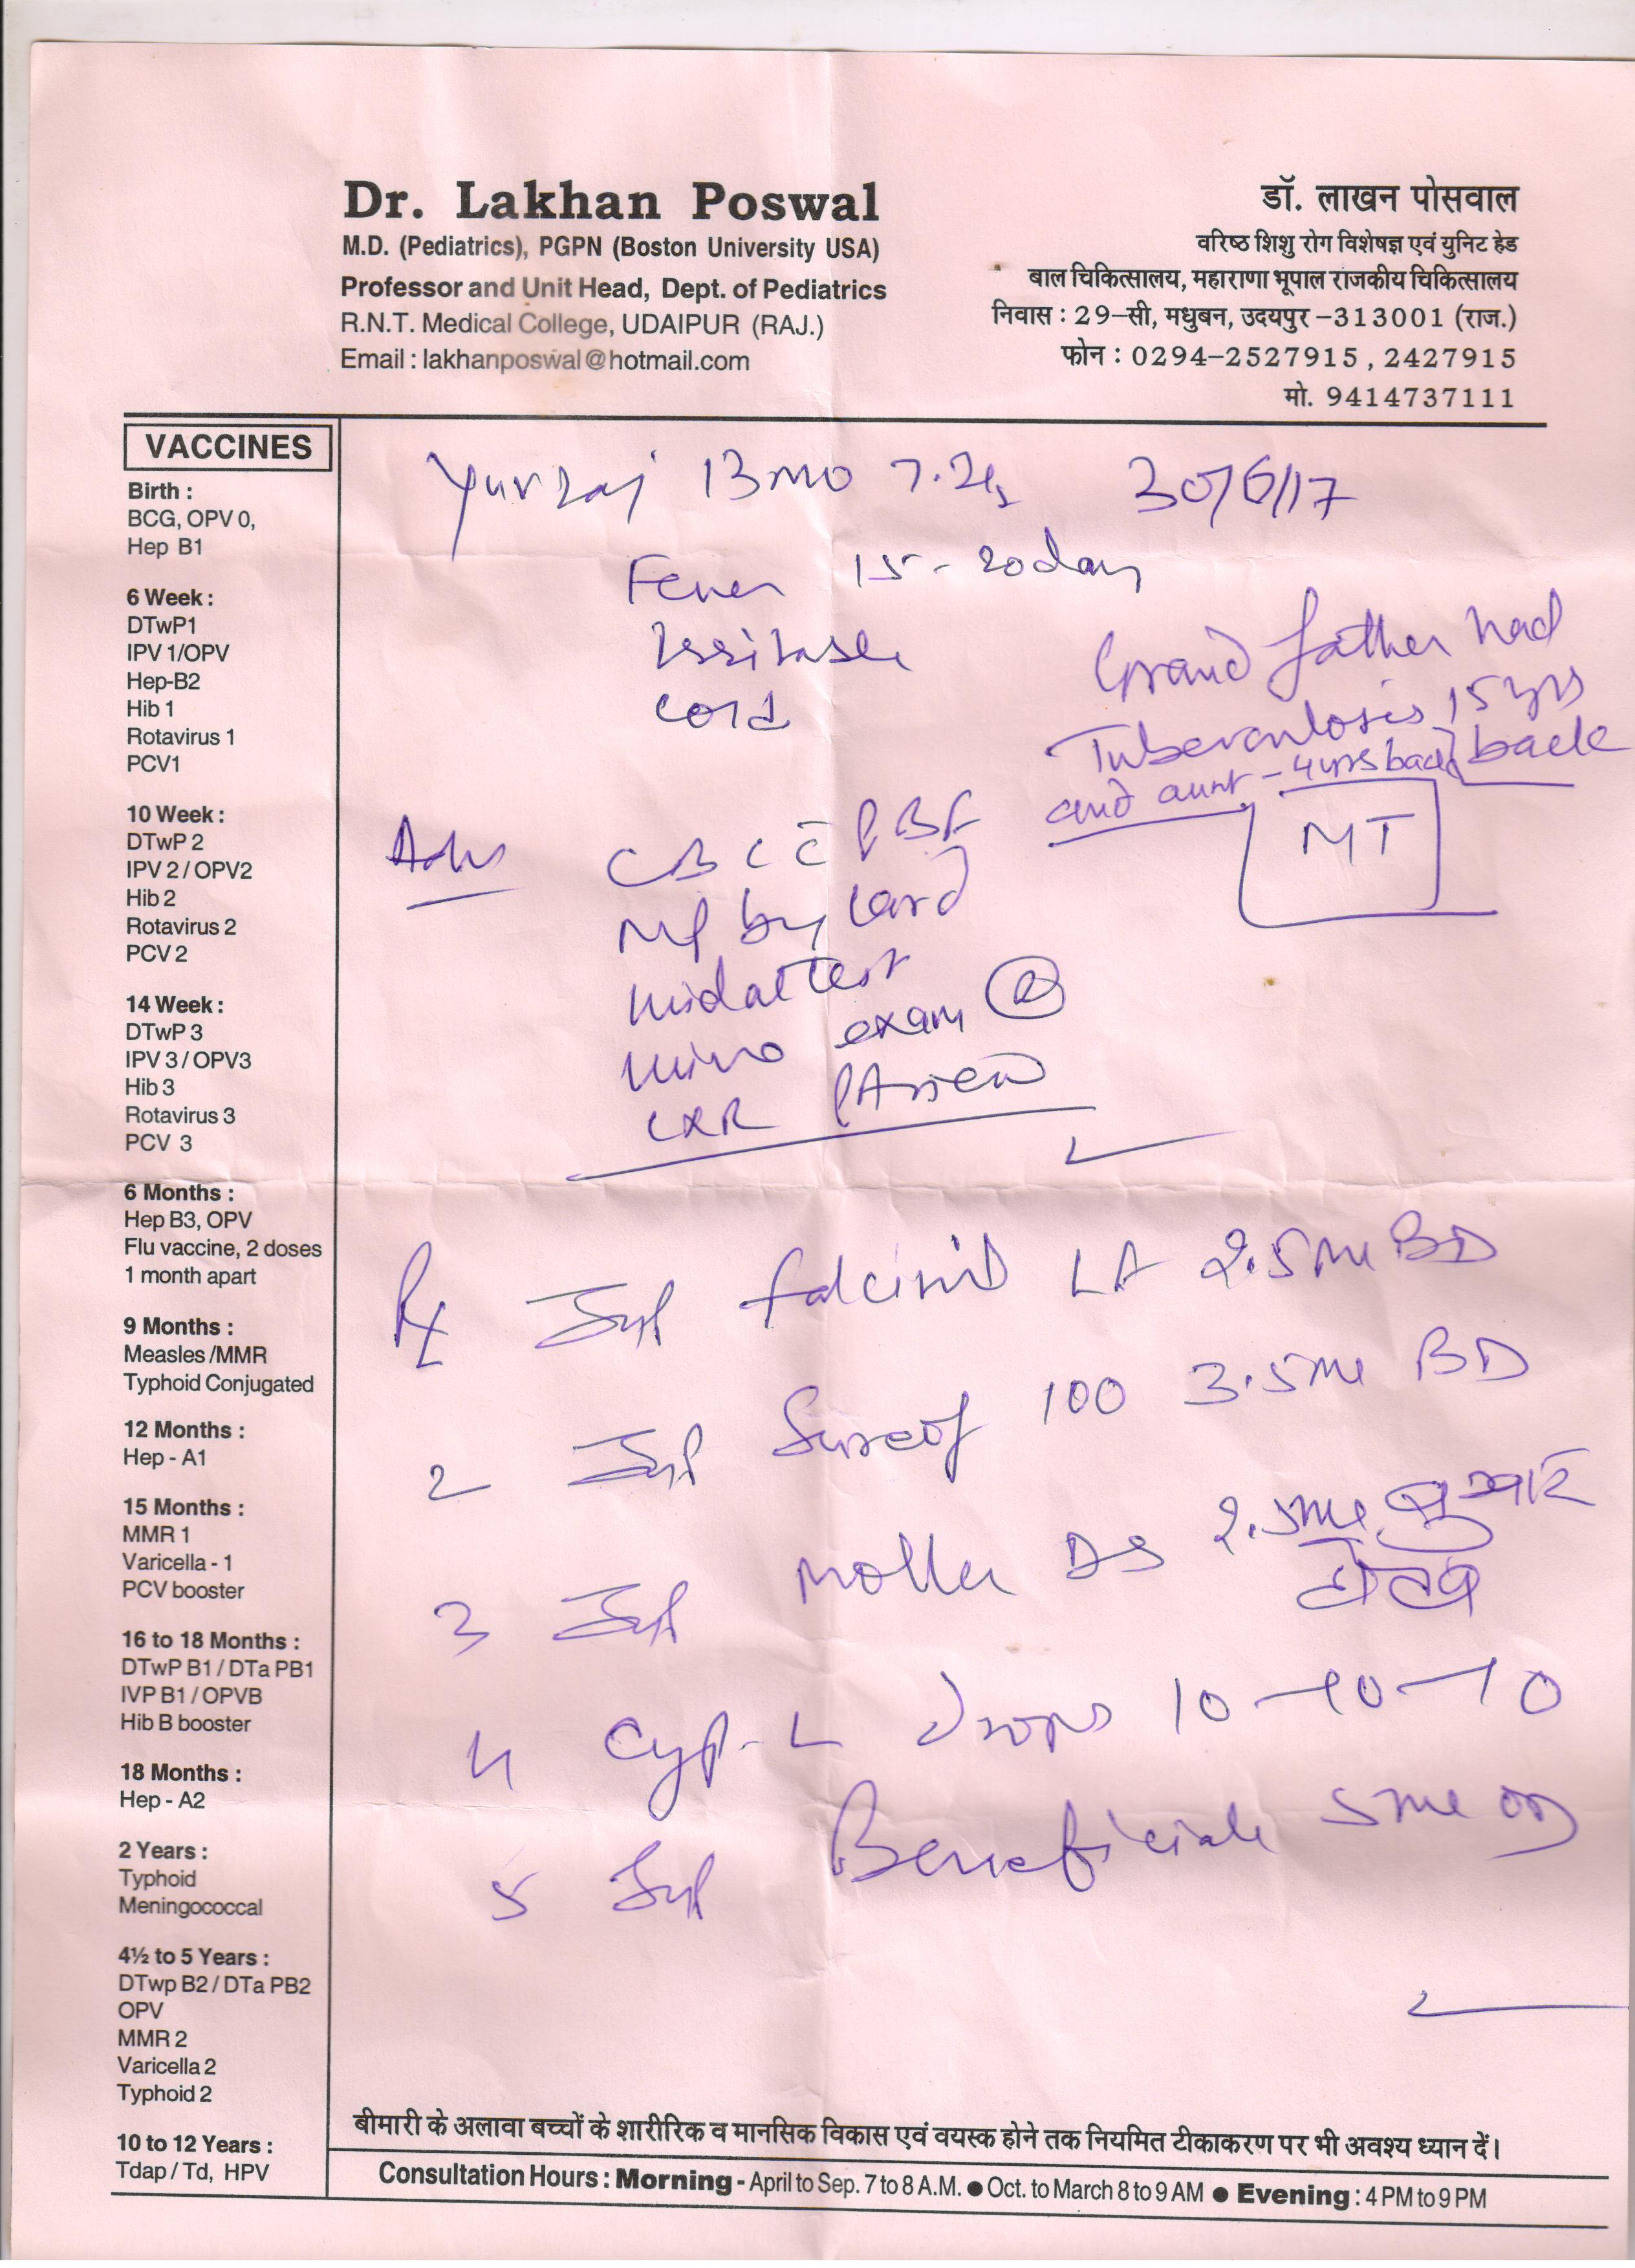 Dr. Lakhan Poswal
M.D. (Pediatrics), PGPN (Boston University USA)
Professor and Unit Head, Dept. of Pediatrics
R.N.T. Medical College, UDAIPUR (RAJ.)
Email : lakhanposwal@hotmail.com
डॉ. लाखन पोसवाल
वरिष्ठ शिशु रोग विशेषज्ञ एवं युनिट हेड
बाल चिकित्सालय, महाराणा भूपाल राजकीय चिकित्सालय
निवास : 29-सी, मधुबन, उदयपुर -313001 (राज.)
फोन : 0294-2527915 , 2427915
मो. 9414737111
VACCINES
Birth :
BCG, OPV 0,
Hep B1
6 Week :
DTwP1
IPV 1/OPV
Hep-B2
Hib 1
Rotavirus 1
PCV1
10 Week :
DTwP 2
IPV 2 / OPV2
Hib 2
Rotavirus 2
PCV 2
14 Week :
DTwP 3
IPV 3 / OPV3
Hib 3
Rotavirus 3
PCV 3
6 Months :
Hep B3, OPV
Flu vaccine, 2 doses
1 month apart
9 Months :
Measles /MMR
Typhoid Conjugated
12 Months :
Hep - A1
15 Months :
MMR 1
Varicella - 1
PCV booster
16 to 18 Months :
DTwP B1 / DTa PB1
IVP B1 / OPVB
Hib B booster
18 Months :
Hep - A2
2 Years :
Typhoid
Meningococcal
4½ to 5 Years :
DTwp B2 / DTa PB2
OPV
MMR 2
Varicella 2
Typhoid 2
10 to 12 Years :
Tdap / Td, HPV
Yuvraj 13 mo 30/6/17
Fever 15 - 20 day
Irritable
cold
Grand father had
Tuberculosis 15 yrs
back
and aunt - 4 yrs back
MT
Adv CBC c̄ PBF
MP by card
widal test
urine exam (R)
CXR PA view
Rx Syp falcinil LA 2.5 ml BD
2 Syp 100 3.5 ml BD
3 Syp DS 2.5 ml बुखार
4 drops 10-10-10
5 Syp Beneficiale 5 ml OD
बीमारी के अलावा बच्चों के शारीरिक व मानसिक विकास एवं वयस्क होने तक नियमित टीकाकरण पर भी अवश्य ध्यान दें।
Consultation Hours : Morning - April to Sep. 7 to 8 A.M. ● Oct. to March 8 to 9 AM ● Evening : 4 PM to 9 PM